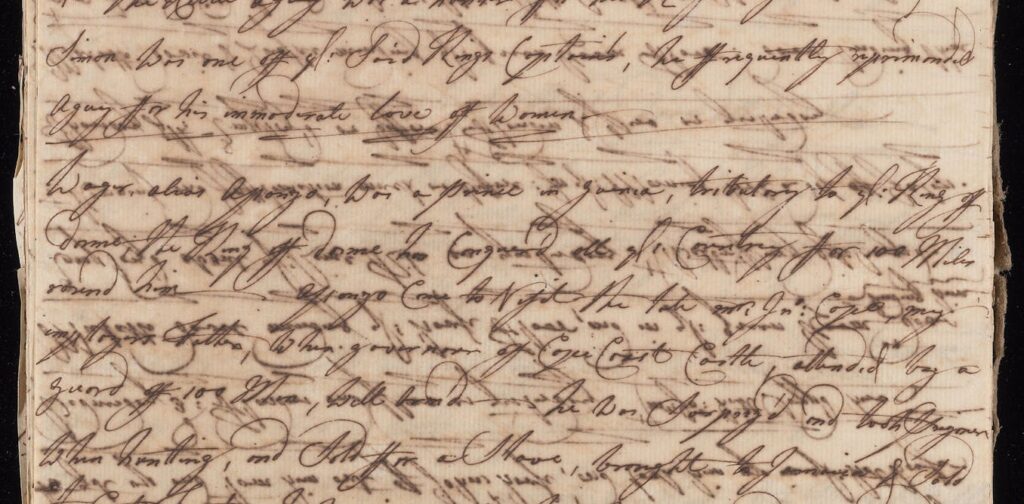 Simon was one of yt. Said Kings Captains, he frequently reprimanded
aguy for his immoderate Love of Women
Wager alias Aponga, was a prince in guinea, tributory to yt. King of
dome The King of dome has Conquer'd all yt. Country for 100 Miles
round him apongo Came to Visit the late mr: Jno: Cope my
imployers Father, When governour of Cape Coast Castle, attended by a
guard of 100 Men, well he was Surprys'd and took Prisoner
When hunting, and Sold for a Slave, brought to Jamaica & Sold